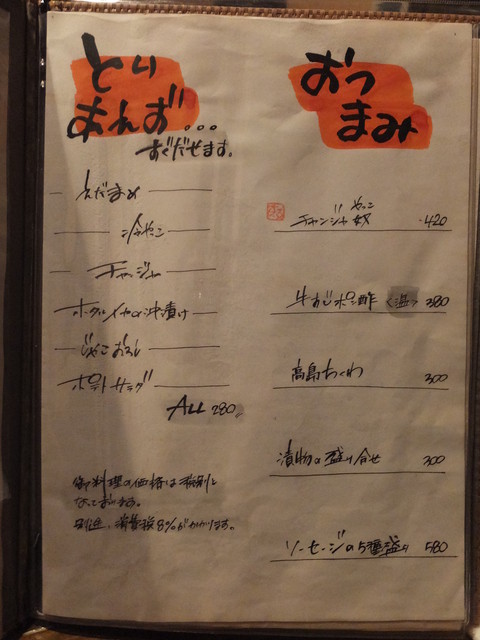 とり
あえず...
すぐだせます。
えだまめ
冷やっこ
チャンジャ
ホタルイカの沖漬け
じゃこおろし
ポテトサラダ
ALL 280
御料理の価格は税別と
なっております。
別途、消費税8%がかかります。
おつ
まみ
チャンジャ奴 420
やっこ
牛すじポン酢 380
高島ちくわ 300
漬物の盛り合せ 300
ソーセージの5種盛り 580